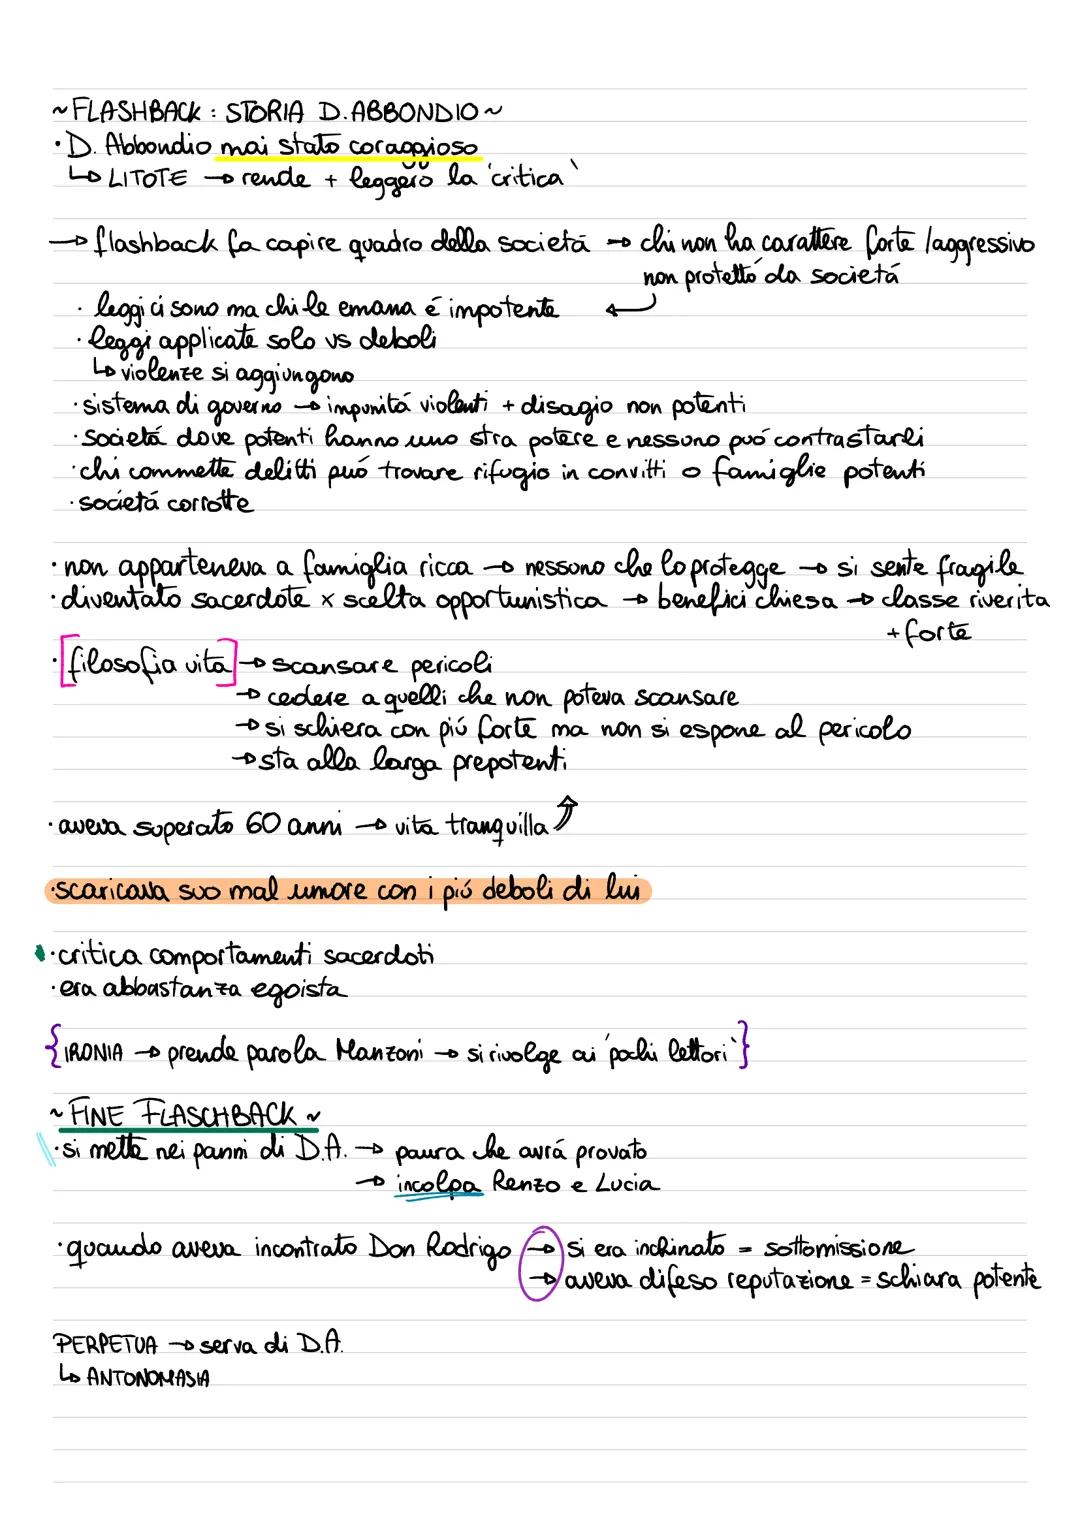 ~ FLASHBACK : STORIA D. ABBONDIO ~
· D. Abbondio mai stato coraggioso
↳ LITOTE → rende + leggero la 'critica`
→ flashback fa capire quadro della società → chi non ha carattere forte / aggressivo
non protetto da società
· leggi ci sono ma chi le emana é impotente ←
· leggi applicate solo vs deboli
↳ violenze si aggiungono
· sistema di governo → impunitá violenti + disagio non potenti
· societá dove potenti hanno uno stra potere e nessuno puó contrastarli
· chi commette delitti puó trovare rifugio in convitti o famiglie potenti
· societá corrotte
· non apparteneva a famiglia ricca → nessuno che lo protegge → si sente fragile
· diventato sacerdote x scelta opportunistica → benefici chiesa → classe riverita
+ forte
· [filosofia vita] → scansare pericoli
→ cedere a quelli che non poteva scansare
→ si schiera con piú forte ma non si espone al pericolo
→ sta alla larga prepotenti
· aveva superato 60 anni → vita tranquilla ↑
· scaricava suo mal umore con i piú deboli di lui
· critica comportamenti sacerdoti
· era abbastanza egoista
{IRONIA → prende parola Manzoni → si rivolge ai 'pochi lettori`}
~ FINE FLASCHBACK ~
· si mette nei panni di D.A. → paura che avrá provato
→ incolpa Renzo e Lucia
· quando aveva incontrato Don Rodrigo → si era inchinato = sottomissione
→ aveva difeso reputazione = schiara potente
PERPETUA → serva di D.A.
↳ ANTONOMASIA